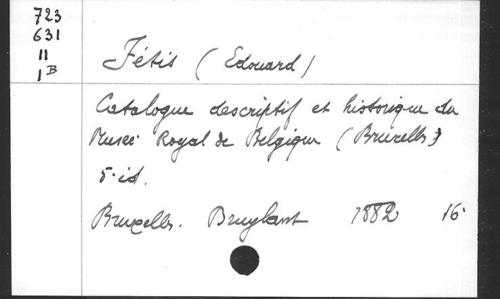 723
631
11
1B
Fétis (Edouard)
Catalogue descriptif et historique du
Musée Royal de Belgique (Bruxelles)
5e id.
Bruxelles. Bruylant 1882 16°